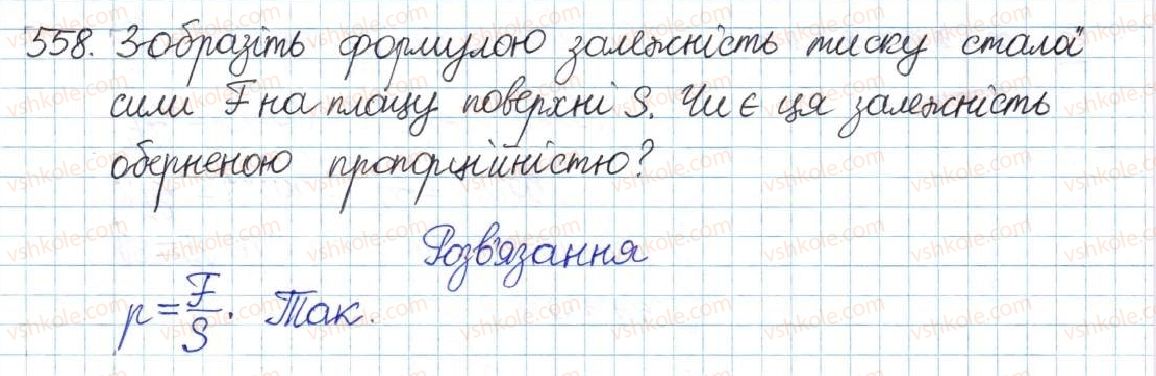 558. Зобразіть формулою залежність тиску сталої
сили F на площу поверхні S. Чи є ця залежність
оберненою пропорційністю?
Розв'язання
p = F/S. Так.